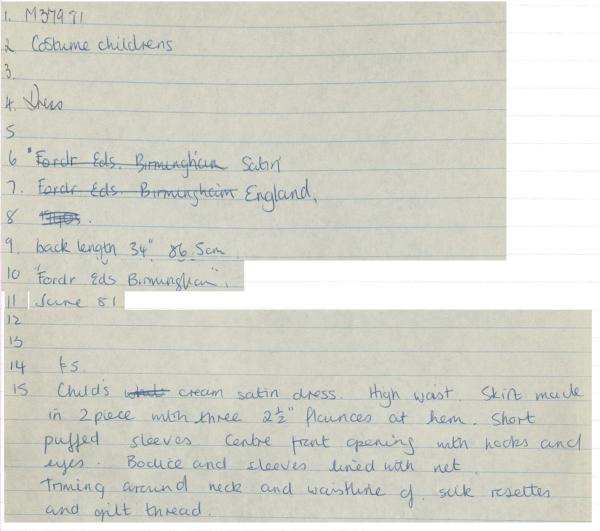 1. M37971
2 Costume childrens
3.
4. Dress
5
6 "Fordr Eds. Birmingham Satin
7. Fordr Eds. Birmingham England,
8 .
9. back length 34" 86.5cm.
10 "Fordr Eds Birmingham".
11 June 81
12
13
14 £5
15 Child's cream satin dress. High waist. Skirt made
in 2piece with three 2½" flounces at hem. Short
puffed sleeves Centre front opening with hooks and
eyes. Bodice and sleeves lined with net.
triming around neck and waistline of silk rosettes
and gilt thread.